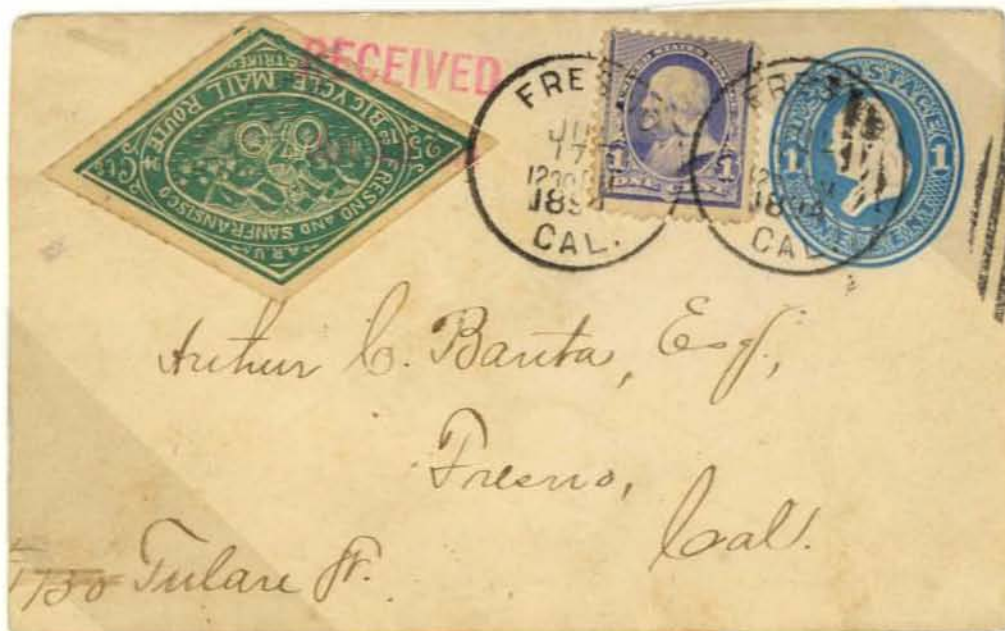 RECEIVED
FRESNO AND SANFRANSISCO
BICYCLE MAIL ROUTE
A.R.U. STRIKE
25 Cts
FRES
JUL
17
1230 PM
1894
CAL.
UNITED STATES
1 1
ONE CENT
FRES
1894
CAL
U.S. POSTAGE
1 1
ONE CENT
Arthur C. Banta, Esq.,
Fresno,
Cal.
1730 Tulare St.